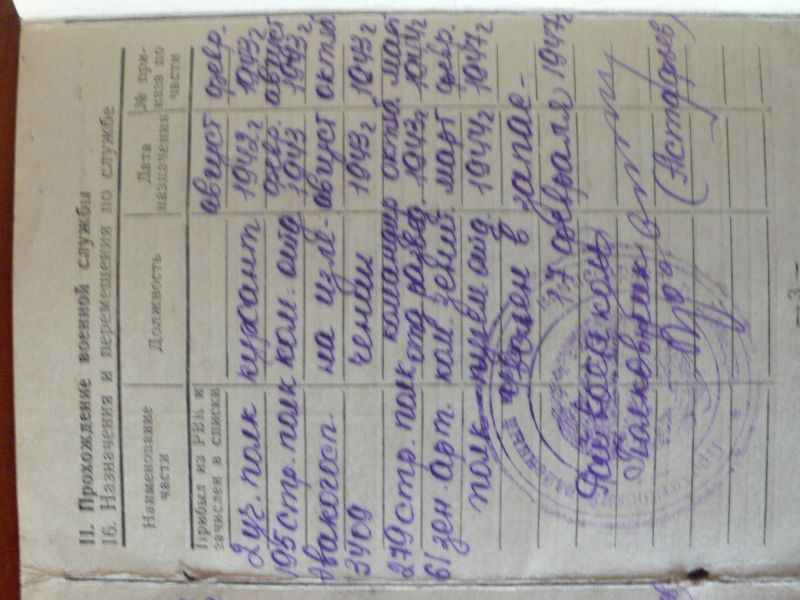 II. Прохождение военной службы
16. Назначения и перемещения по службе
Наименование части Должность Дата назначения № приказа по части
Прибыл из РВК и зачислен в списки
2 уч. полк курсант август 1942 г февр. 1943 г
195 стр. полк ком. отд. февр. 1943 август 1943 г
Эвакогосп. 3409 на излечении август 1943 г октяб 1943 г
279 стр. полк командир отд развед. октяб 1943 г март 1944 г
61 зен. арт. полк ком. зенит. пулем отд. март 1944 г февр. 1947 г
Уволен в запас -
27 февраля 1947 г
Райвоенком
Полковник
(Астафьев)
- 3 -